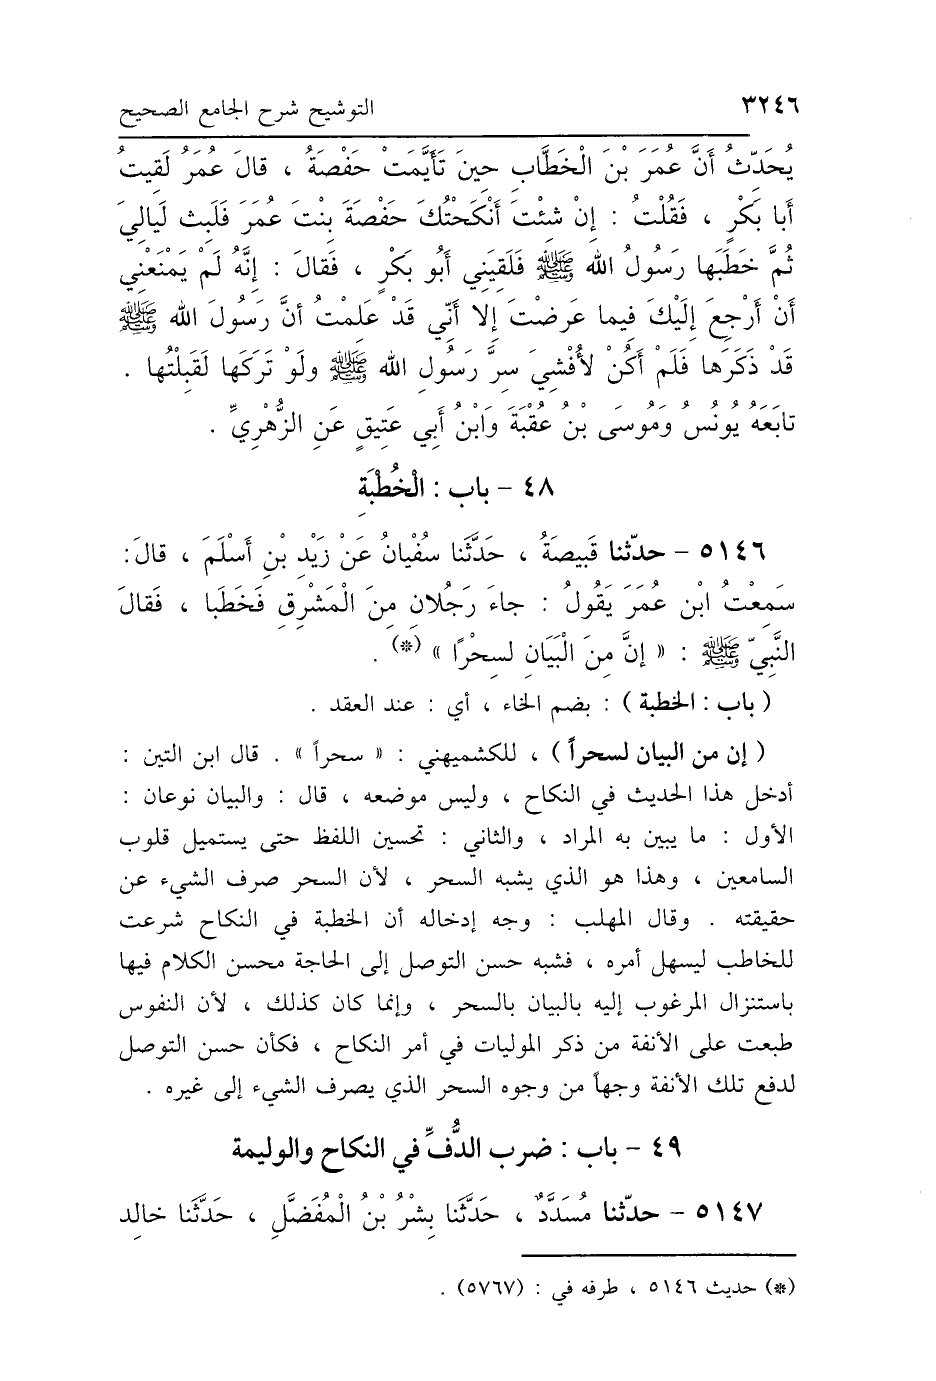 ٣٢٤٦ التوشيح شرح الجامع الصحيح
يُحَدِّثُ أَنَّ عُمَرَ بْنَ الْخَطَّابِ حِينَ تَأَيَّمَتْ حَفْصَةُ ، قالَ عُمَرُ لَقِيتُ
أَبا بَكْرٍ ، فَقُلْتُ : إِنْ شئْتَ أَنْكَحْتُكَ حَفْصَةَ بِنْتَ عُمَرَ فَلَبِثَ لَيالِيَ
ثُمَّ خَطَبَها رَسُولُ الله ﷺ فَلَقِيَنِي أَبُو بَكْرٍ ، فَقالَ : إِنَّهُ لَمْ يَمْنَعْنِي
أَنْ أَرْجِعَ إِلَيْكَ فِيما عَرَضْتَ إِلا أَنِّي قَدْ عَلِمْتُ أنَّ رَسُولَ الله ﷺ
قَدْ ذَكَرَها فَلَمْ أَكُنْ لأُفْشِيَ سِرَّ رَسُولِ الله ﷺ ولَوْ تَرَكَها لَقَبِلْتُها .
تابَعَهُ يُونُسُ وَمُوسَى بْنُ عُقْبَةَ وَابْنُ أَبي عَتِيقٍ عَنِ الزُّهْرِيِّ .
٤٨ - باب : الْخُطْبَةِ
٥١٤٦ - حدّثنا قَبِيصَةُ ، حَدَّثَنا سُفْيانُ عَنْ زَيْدِ بْنِ أَسْلَمَ ، قالَ:
سَمِعْتُ ابْنِ عُمَرَ يَقُولُ : جاءَ رَجُلانِ مِنَ الْمَشْرِقِ فَخَطَبا ، فَقالَ
النَّبِيّ ﷺ : « إِنَّ مِنَ الْبَيَانِ لَسِحْرًا » (*) .
( باب : الخطبة ) : بضم الخاء ، أي : عند العقد .
( إن من البيان لسحراً ) ، للكشميهني : « سحراً » . قال ابن التين :
أدخل هذا الحديث في النكاح ، وليس موضعه ، قال : والبيان نوعان :
الأول : ما يبين به المراد ، والثاني : تحسين اللفظ حتى يستميل قلوب
السامعين ، وهذا هو الذي يشبه السحر ، لأن السحر صرف الشيء عن
حقيقته . وقال المهلب : وجه إدخاله أن الخطبة في النكاح شرعت
للخاطب ليسهل أمره ، فشبه حسن التوصل إلى الحاجة محسن الكلام فيها
باستنزال المرغوب إليه بالبيان بالسحر ، وإنما كان كذلك ، لأن النفوس
طبعت على الأنفة من ذكر الموليات في أمر النكاح ، فكأن حسن التوصل
لدفع تلك الأنفة وجهاً من وجوه السحر الذي يصرف الشيء إلى غيره .
٤٩ - باب : ضرب الدُّفِّ في النكاح والوليمة
٥١٤٧ - حدّثنا مُسَدَّدٌ ، حَدَّثَنا بِشْرُ بْنُ الْمُفَضَّلِ ، حَدَّثَنا خالِد
(*) حديث ٥١٤٦ ، طرفه في : (٥٧٦٧) .